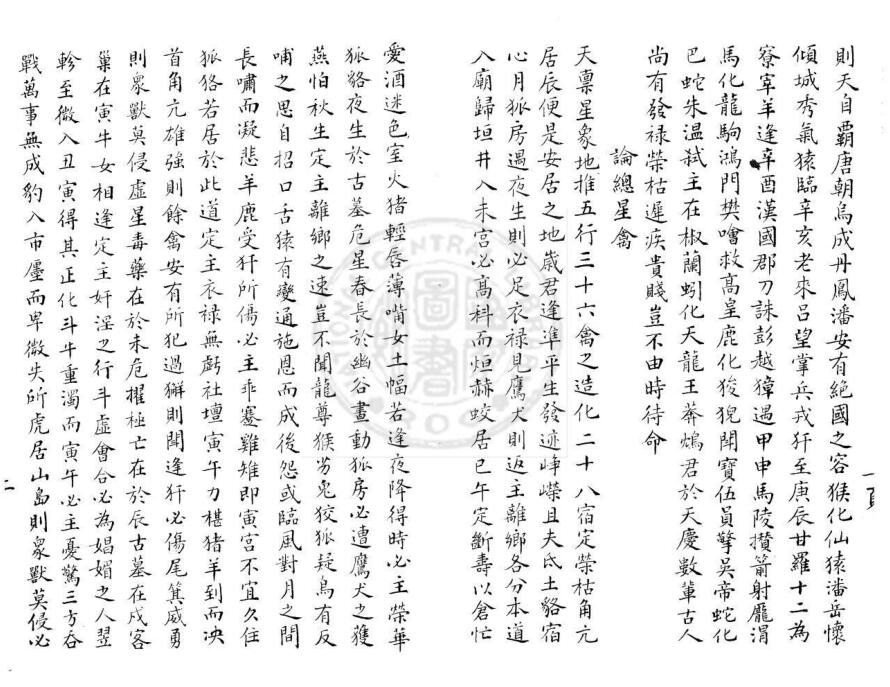 則天自霸唐朝烏成丹鳳潘安有絕國之容猴化仙猿潘岳懷
傾城秀氣猿臨辛亥老來呂望掌兵戎犴至庚辰甘羅十二為
寮宰羊逢辛酉漢國郡刀誅彭越獐遇甲申馬陵攢箭射龐涓
馬化龍駒鴻門樊噲救高皇鹿化狻猊聞寶伍員擎吳帝蛇化
巴蛇朱溫弒主在椒蘭蚓化天龍王莽鴆君於天慶數輩古人
尚有發祿榮枯遲疾貴賤豈不由時待命
論總星禽
天稟星象地推五行三十六禽之造化二十八宿定榮枯角亢
居辰便是安居之地歲君逢準平生發迹崢嶸且夫氐土貉宿
心月狐房過夜生則必足衣祿見鷹犬則返主離鄉各分本道
入廟歸垣井入未宮必高科而烜赫蛟居巳午定斷壽以倉忙
愛酒迷色室火猪輕唇薄嘴女土蝠若逢夜降得時必主榮華
狐貉夜生於古墓危星春長於幽谷晝動狐房必遭鷹犬之獲
燕怕秋生定主離鄉之速豈不聞龍尊猴劣兎狡狐疑烏有反
哺之思自招口舌猿有變通施恩而成後怨或臨風對月之間
長嘯而凝悲羊鹿受犴所傷必主乖蹇雞雉即寅宮不宜久住
狐狢若居於此道定主衣祿無虧社壇寅午力椹猪羊到而決
首角亢雄強則餘禽安有所犯過獬則聞逢犴必傷尾箕威勇
則衆獸莫侵虛星毒藥在於未危擢極亡在於辰古墓在戍客
巢在寅牛女相逢定主奸淫之行斗虛會合必為娼媚之人翌
軫至微入丑寅得其正化斗牛重濁而寅午必主憂驚三方吞
戰萬事無成豹入市廛而卑微失所虎居山島則衆獸莫侵必